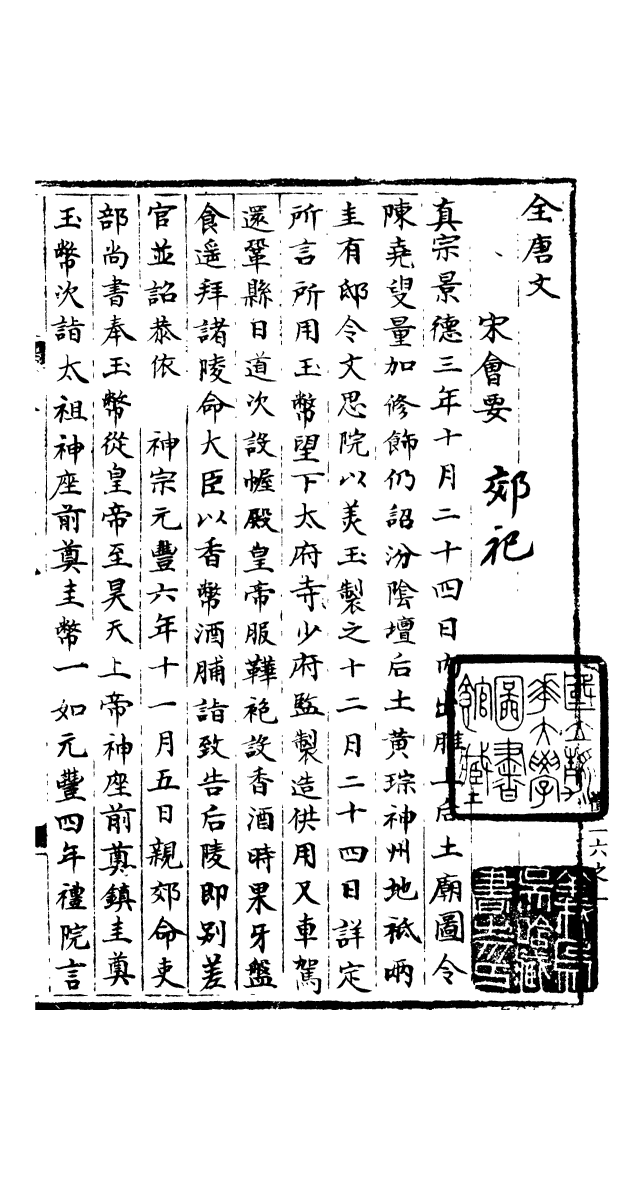 全唐文
宋會要
郊祀
真宗景德三年十月二十四日內出脽上后土廟圖令
陳堯叟量加修飾仍詔汾陰壇后土黃琮神州地祇兩
圭有邸令文思院以美玉製之十二月二十四日詳定
所言所用玉幣望下太府寺少府監製造供用又車駕
還鞏縣日道次設幄殿皇帝服鞾袍設香酒時果牙盤
食遥拜諸陵命大臣以香幣酒脯詣致告后陵即别差
官並詔恭依　神宗元豐六年十一月五日親郊命吏
部尚書奉玉幣從皇帝至昊天上帝神座前奠鎮圭奠
玉幣次詣太祖神座前奠圭幣一如元豐四年禮院言
國立清華大學圖書館藏
六之一